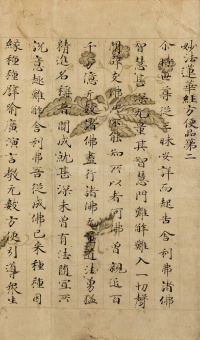 妙法蓮華經方便品第二
尒時世尊從三昧安詳而起告舍利弗諸佛
智慧甚深无量其智慧門難解難入一切聲
聞辟支佛所不能知所以者何佛曾親近百
千万億无數諸佛盡行諸佛无量道法勇猛
精進名稱普聞成就甚深未曾有法隨宜所
說意趣難解舍利弗吾從成佛已來種種因
緣種種譬喻廣演言教无數方便引導衆生